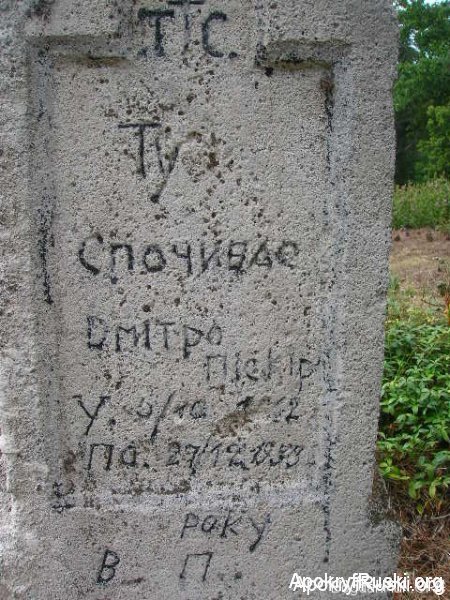 ІС.
Ту
Спочиває
Дмітро
Піскір
У. 5/10
Па. 27/12,1933.
року
В. П.
ApokryfRuski.org